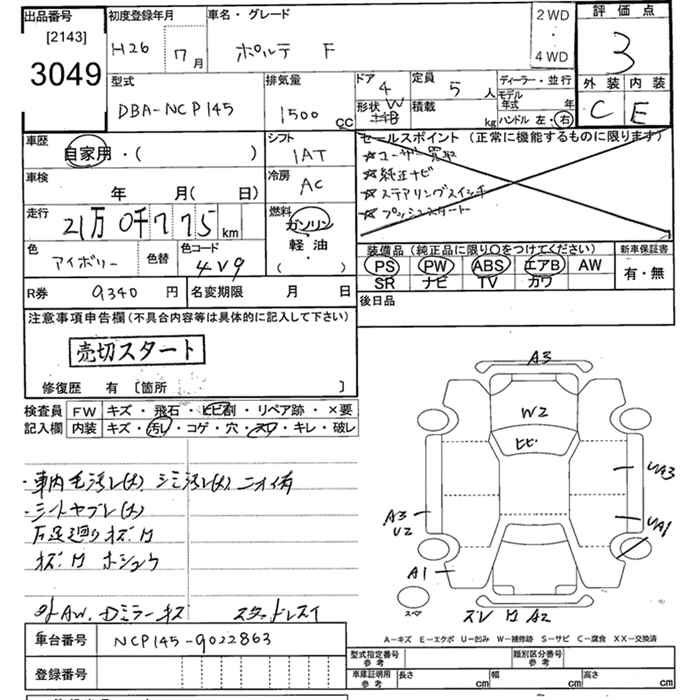 出品番号
[2143]
3049
初度登録年月
H26 7月
車名・グレード
ポルテ F
2WD
・
4WD
評価点
3
外装 内装
C E
型式
DBA-NCP145
排気量
1500 CC
ドア 4
形状 W
定員 5人
積載 kg
ディーラー・並行
モデル年式 年
ハンドル 左・右
車歴
自家用・( )
シフト
1AT
セールスポイント (正常に機能するものに限ります)
☆ユーザー買取
☆純正ナビ
☆ステアリングスイッチ
☆プッシュスタート
車検
年 月( 日)
冷房
AC
走行
21万0千775km
燃料
ガソリン
軽油
( )
色
アイボリー
色替
色コード
4V9
装備品(純正品に限り○をつけてください)
PS PW ABS エアB AW
SR ナビ TV カワ
新車保証書
有・無
R券 9340円
名変期限 月 日
後日品
注意事項申告欄(不具合内容等は具体的に記入して下さい)
売切スタート
修復歴 有 [箇所 ]
検査員記入欄
FW キズ・飛石・ヒビ割・リペア跡・×要
内装 キズ・汚レ・コゲ・穴・スレ・キレ・破レ
・車内毛汚レ(大) シミ汚レ(大) ニオイ有
・シートヤブレ(大)
下足廻りキズサ
キズサ ホシュウ
外AW. Dミラーキズ スタッドレスイ
A3
W2
ヒビ
UA3
A3
U2
UA1
A1
スペア
ズレ サ A2
A－キズ E－エクボ U－凹み W－補修跡 S－サビ C－腐食 XX－交換済
車台番号 NCP145-9022863
登録番号
型式指定番号
参考
類別区分番号
参考
車庫証明用
参考
長さ cm
幅 cm
高さ cm